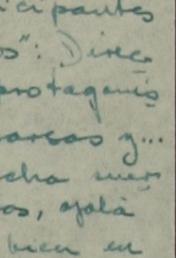 icipantes
os": Direc
protagonis
parcas y...
cha suer
os, ojalá
bien en